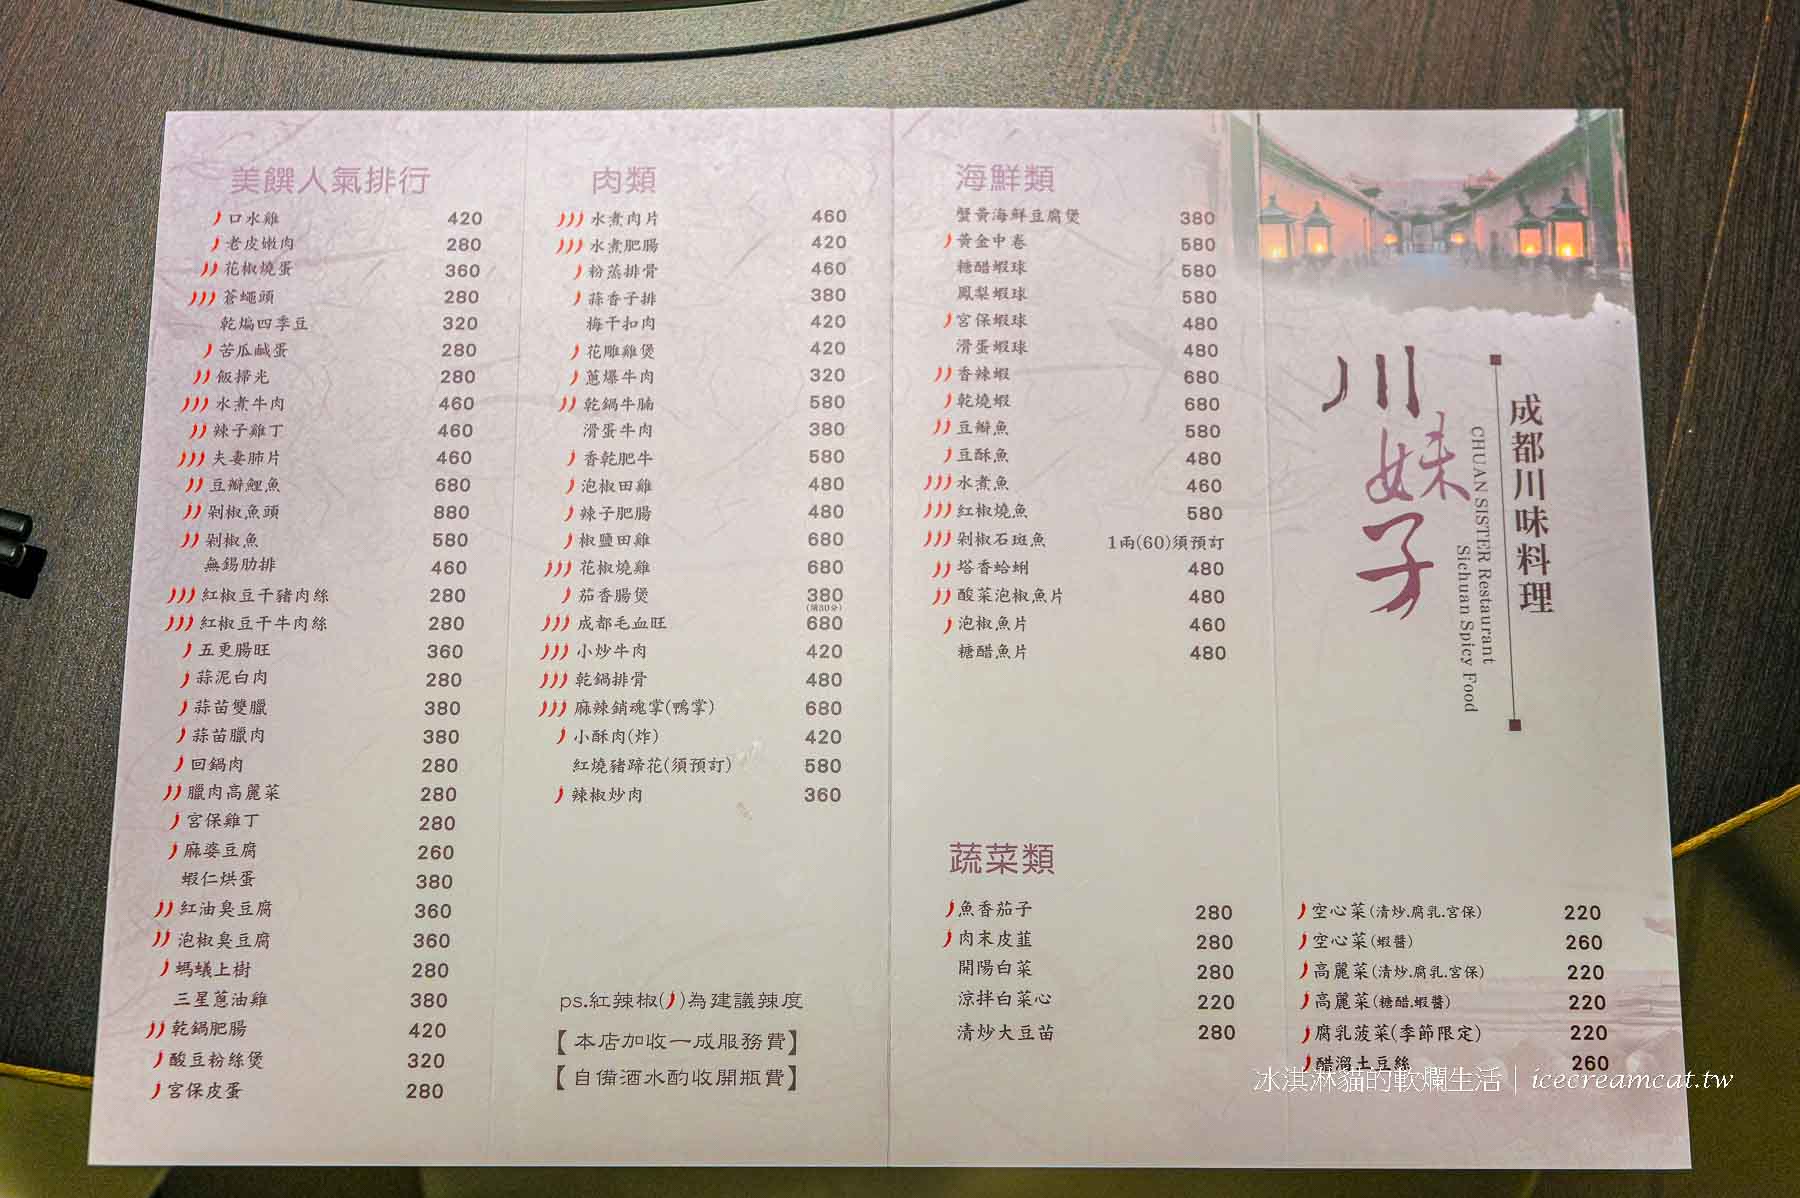 美饌人氣排行
口水雞 420
老皮嫩肉 280
花椒燒蛋 360
蒼蠅頭 280
乾煸四季豆 320
苦瓜鹹蛋 280
飯掃光 280
水煮牛肉 460
辣子雞丁 460
夫妻肺片 460
豆瓣鯉魚 680
剁椒魚頭 880
剁椒魚 580
無錫肋排 460
紅椒豆干豬肉絲 280
紅椒豆干牛肉絲 280
五更腸旺 360
蒜泥白肉 280
蒜苗雙臘 380
蒜苗臘肉 380
回鍋肉 280
臘肉高麗菜 280
宮保雞丁 280
麻婆豆腐 260
蝦仁烘蛋 380
紅油臭豆腐 360
泡椒臭豆腐 360
螞蟻上樹 280
三星蔥油雞 380
乾鍋肥腸 420
酸豆粉絲煲 320
宮保皮蛋 280
肉類
水煮肉片 460
水煮肥腸 420
粉蒸排骨 460
蒜香子排 380
梅干扣肉 420
花雕雞煲 420
蔥爆牛肉 320
乾鍋牛腩 580
滑蛋牛肉 380
香乾肥牛 580
泡椒田雞 480
辣子肥腸 480
椒鹽田雞 680
花椒燒雞 680
茄香腸煲 380
(須30分)
成都毛血旺 680
小炒牛肉 420
乾鍋排骨 480
麻辣銷魂掌(鴨掌) 680
小酥肉(炸) 420
紅燒豬蹄花(須預訂) 580
辣椒炒肉 360
ps.紅辣椒( )為建議辣度
【本店加收一成服務費】
【自備酒水酌收開瓶費】
海鮮類
蟹黃海鮮豆腐煲 380
黃金中卷 580
糖醋蝦球 580
鳳梨蝦球 580
宮保蝦球 480
滑蛋蝦球 480
香辣蝦 680
乾燒蝦 680
豆瓣魚 580
豆酥魚 480
水煮魚 460
紅椒燒魚 580
剁椒石斑魚 1兩(60)須預訂
塔香蛤蜊 480
酸菜泡椒魚片 480
泡椒魚片 460
糖醋魚片 480
蔬菜類
魚香茄子 280
肉末皮韮 280
開陽白菜 280
涼拌白菜心 220
清炒大豆苗 280
川妹子
成都川味料理
CHUAN SISTER Restaurant
Sichuan Spicy Food
空心菜(清炒.腐乳.宮保) 220
空心菜(蝦醬) 260
高麗菜(清炒.腐乳.宮保) 220
高麗菜(糖醋.蝦醬) 220
腐乳菠菜(季節限定) 220
醋溜土豆絲 260
冰淇淋貓的軟爛生活｜icecreamcat.tw